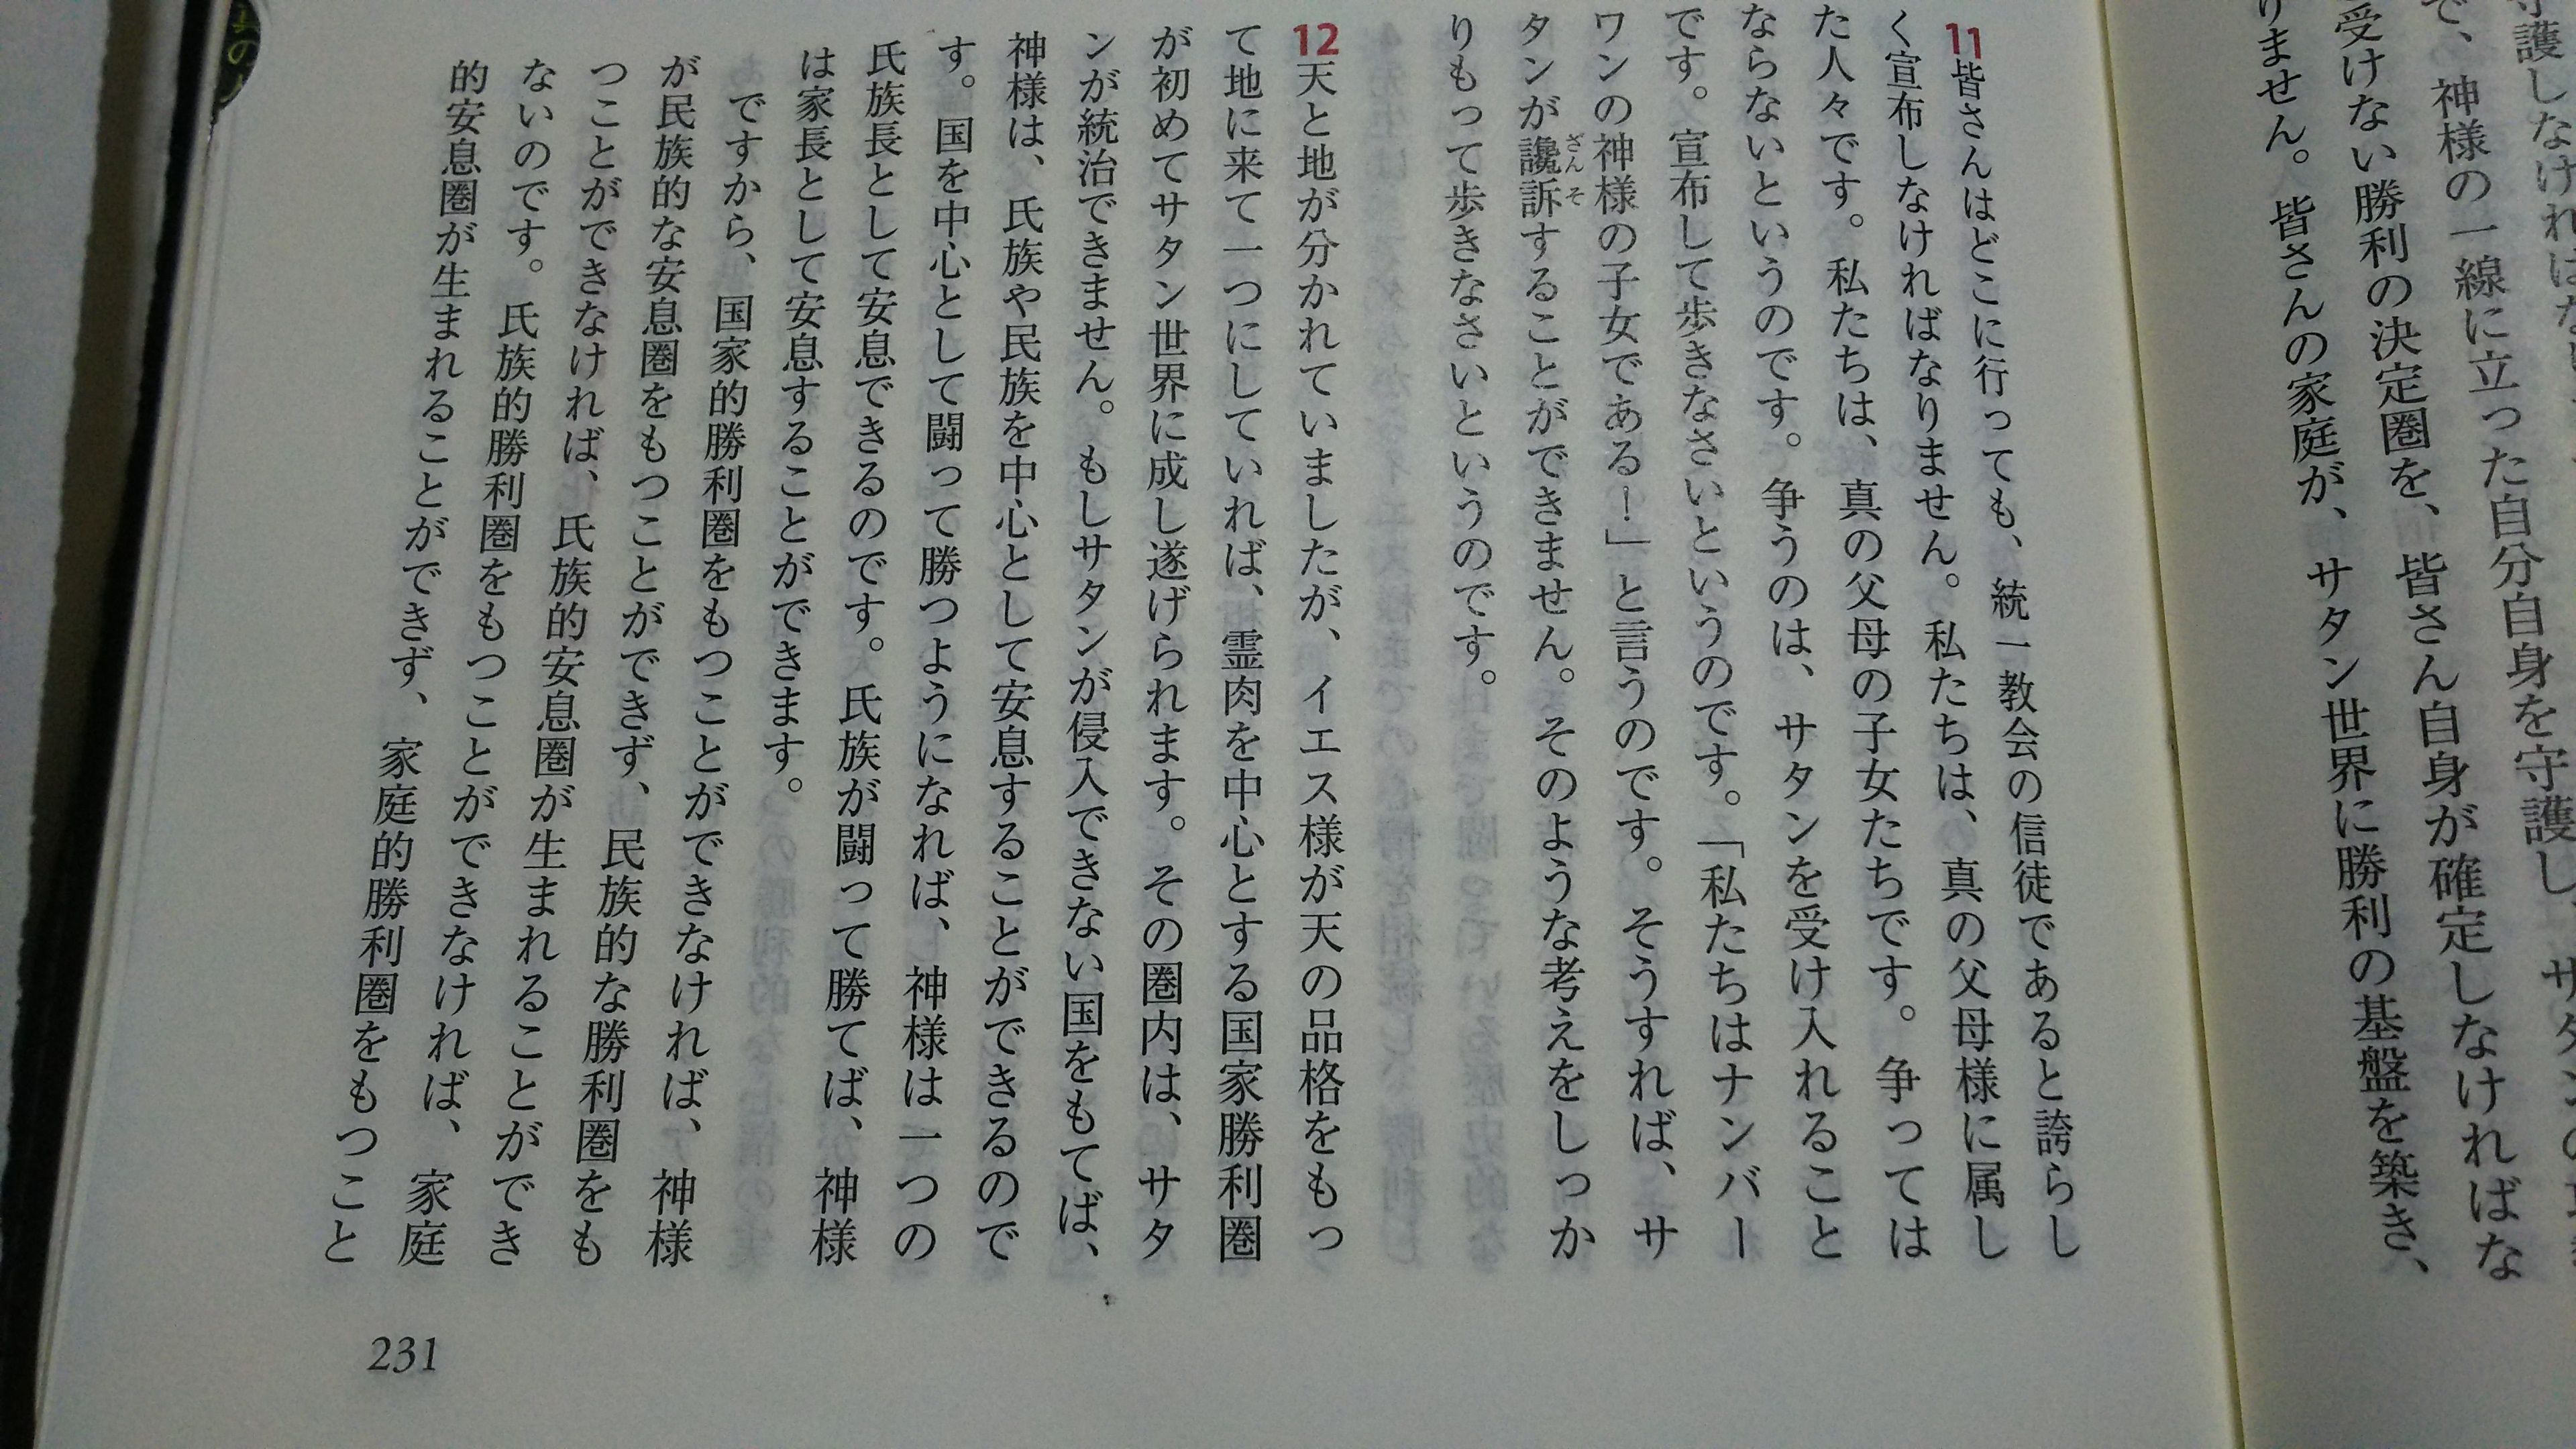 守護しなければな
で、神様の一線に立った自分自身を守護し、サタンの
受けない勝利の決定圏を、皆さん自身が確定しなければな
りません。皆さんの家庭が、サタン世界に勝利の基盤を築き、
11皆さんはどこに行っても、統一教会の信徒であると誇らし
く宣布しなければなりません。私たちは、真の父母様に属し
た人々です。私たちは、真の父母の子女たちです。争っては
ならないというのです。争うのは、サタンを受け入れること
です。宣布して歩きなさいというのです。「私たちはナンバー
ワンの神様の子女である！」と言うのです。そうすれば、サ
タンが讒訴することができません。そのような考えをしっか
ざんそ
りもって歩きなさいというのです。
12天と地が分かれていましたが、イエス様が天の品格をもっ
て地に来て一つにしていれば、霊肉を中心とする国家勝利圏
が初めてサタン世界に成し遂げられます。その圏内は、サタ
ンが統治できません。もしサタンが侵入できない国をもてば、
神様は、氏族や民族を中心として安息することができるので
す。国を中心として闘って勝つようになれば、神様は一つの
氏族長として安息できるのです。氏族が闘って勝てば、神様
は家長として安息することができます。
ですから、国家的勝利圏をもつことができなければ、神様
が民族的な安息圏をもつことができず、民族的な勝利圏をも
つことができなければ、氏族的安息圏が生まれることができ
ないのです。氏族的勝利圏をもつことができなければ、家庭
的安息圏が生まれることができず、家庭的勝利圏をもつこと
231